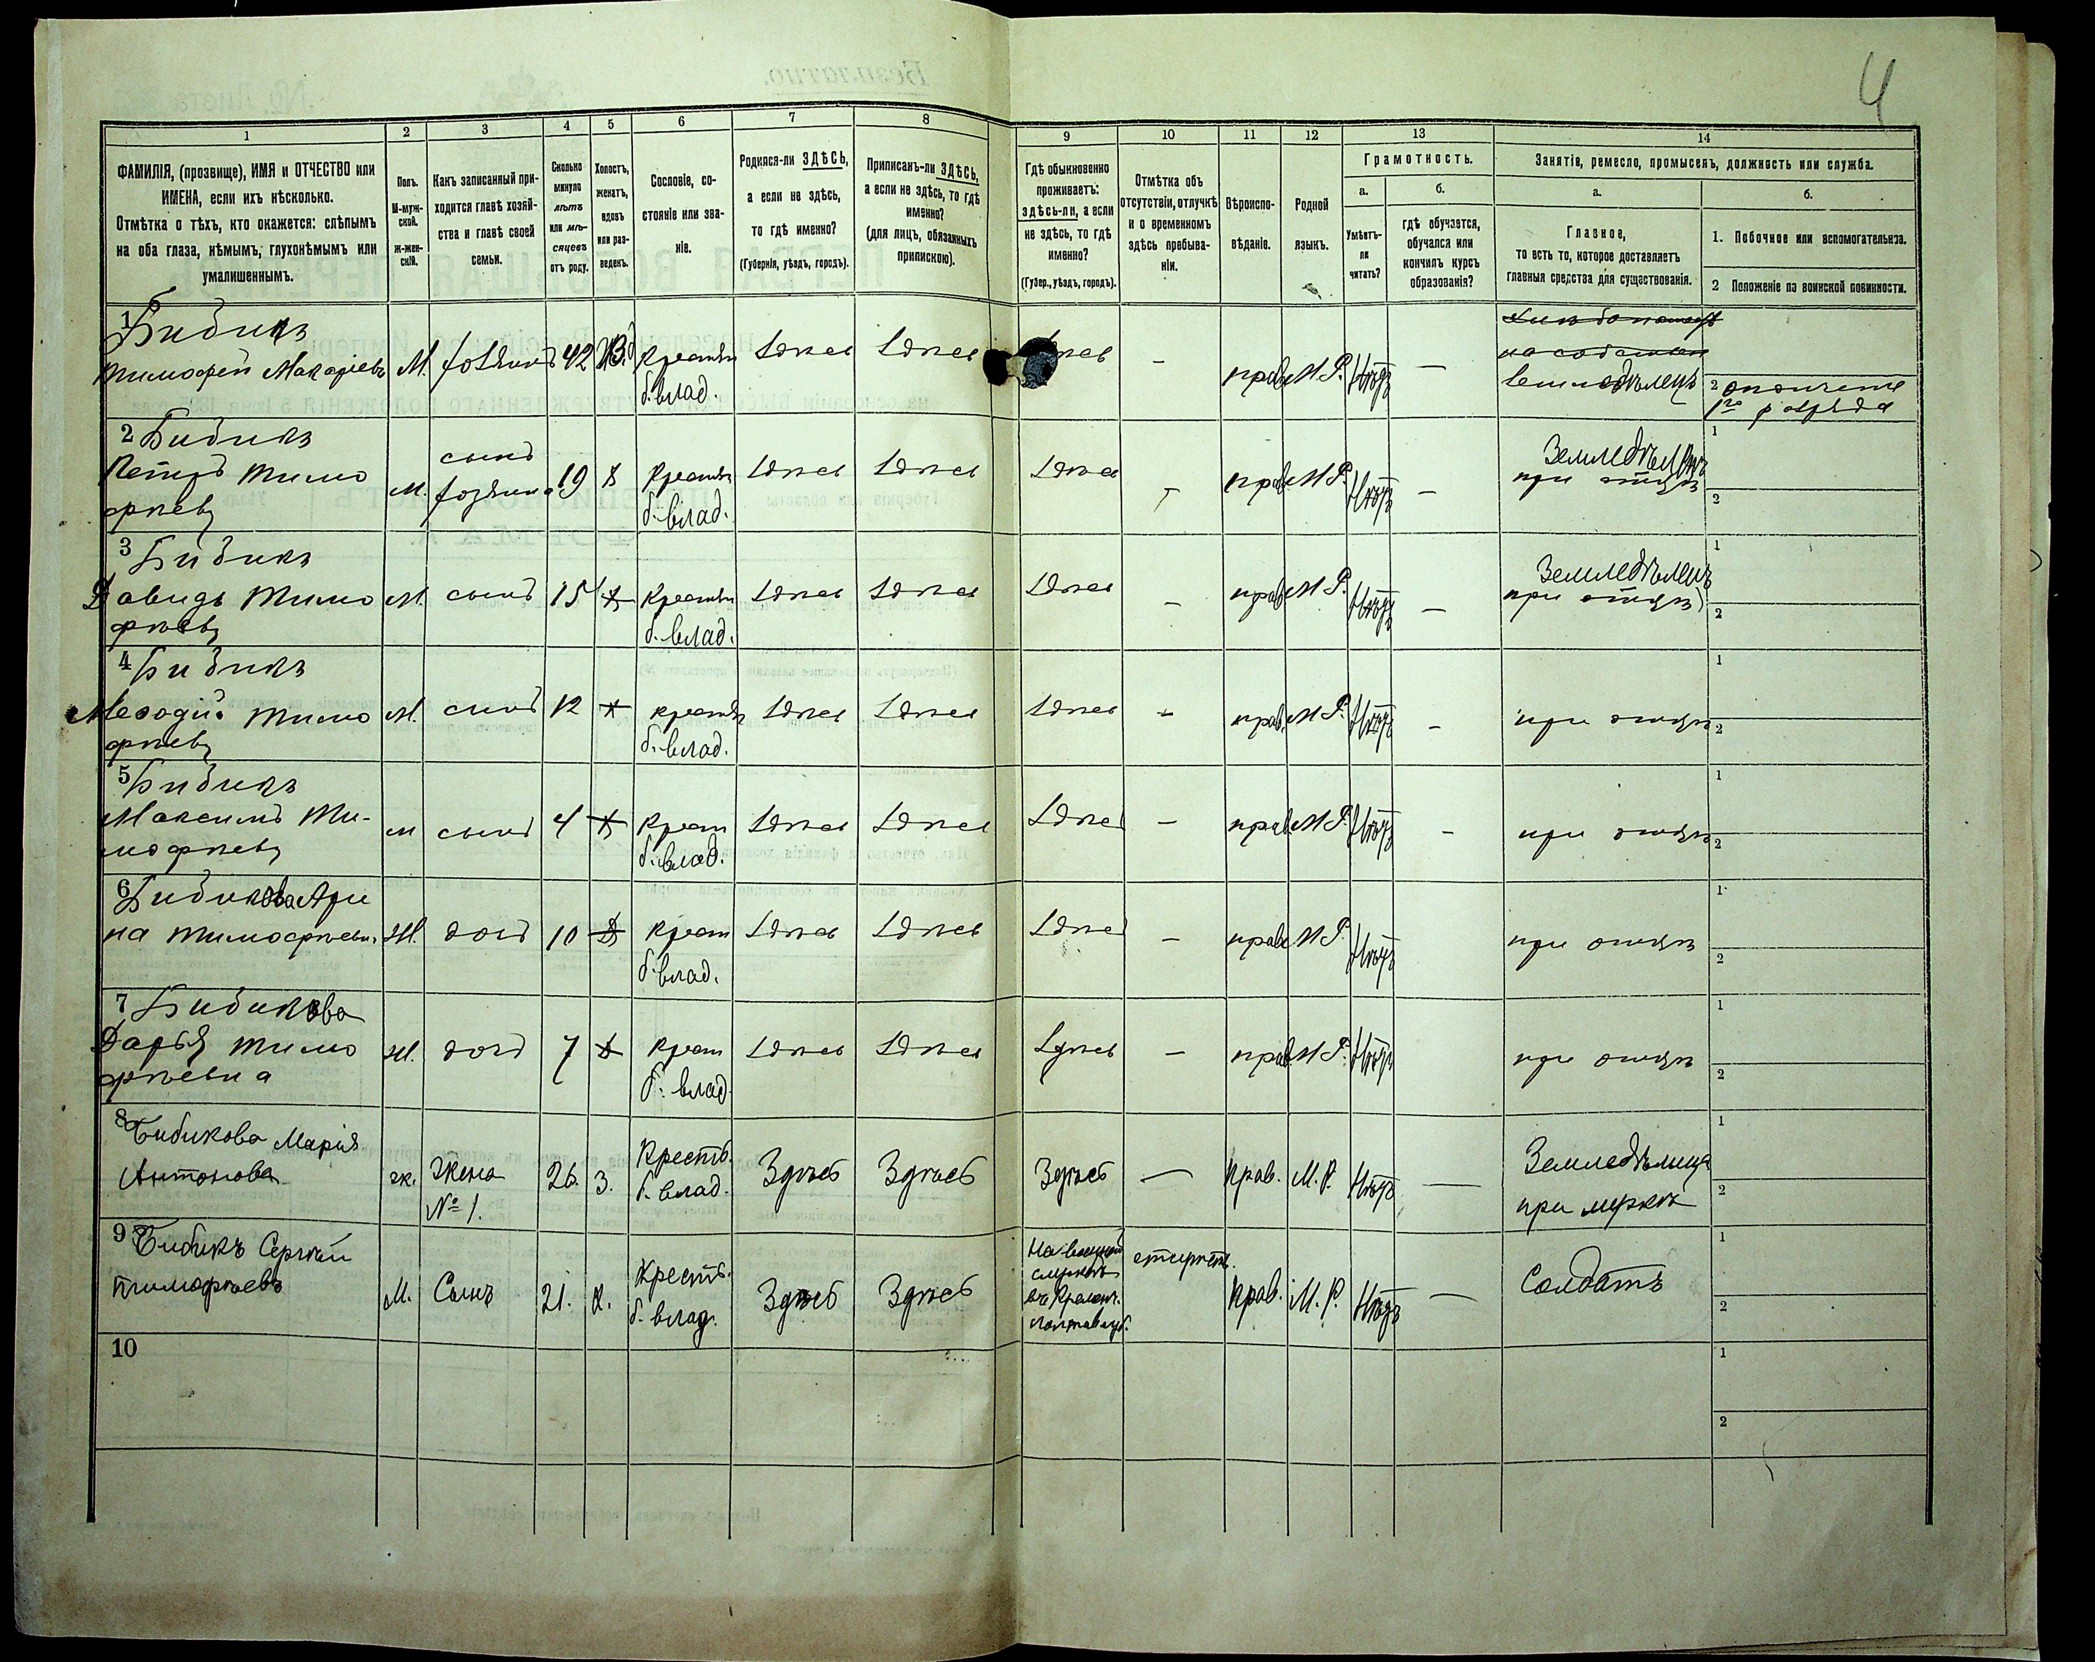 4
1 2 3 4 5 6 7 8 9 10 11 12 13 14
ФАМИЛІЯ, (прозвище), ИМЯ и ОТЧЕСТВО или
ИМЕНА, если ихъ нѣсколько.
Отмѣтка о тѣхъ, кто окажется: слѣпымъ
на оба глаза, нѣмымъ, глухонѣмымъ или
умалишеннымъ.
Полъ.
М-муж-
ской.
Ж-жен-
скій.
Какъ записанный при-
ходится главѣ хозяй-
ства и главѣ своей
семьи.
Сколько
минуло
лѣтъ
или мѣ-
сяцевъ
отъ роду.
Холостъ,
женатъ,
вдовъ
или раз-
веденъ.
Сословіе, со-
стояніе или зва-
ніе.
Родился-ли ЗДѢСЬ,
а если не здѣсь,
то гдѣ именно?
(Губернія, уѣздъ, городъ).
Приписанъ-ли ЗДѢСЬ,
а если не здѣсь, то гдѣ
именно?
(для лицъ, обязанныхъ
припискою).
Гдѣ обыкновенно
проживаетъ:
здѣсь-ли, а если
не здѣсь, то гдѣ
именно?
(Губер., уѣздъ, городъ).
Отмѣтка объ
отсутствіи, отлучкѣ
и о временномъ
здѣсь пребыва-
ніи.
Вѣроиспо-
вѣданіе.
Родной
языкъ.
Грамотность.
а.
Умѣетъ-
ли
читать?
б.
гдѣ обучается,
обучался или
кончилъ курсъ
образованія?
Занятіе, ремесло, промыселъ, должность или служба.
а.
Главное,
то есть то, которое доставляетъ
главныя средства для существованія.
б.
1. Побочное или вспомогательное.
2 Положеніе по воинской повинности.
1 Бибикъ
Тимофей Макаріевъ М. хозяинъ 42 Крестьян Здѣсь Здѣсь – прав. М.Р. Нѣтъ –
б. влад.
землѣдѣлецъ
2 ополчене
1го разряда
2 Бибикъ
Петръ Тимо
фѣевъ
М. сынъ
хозяина 19 Х Крестьян
б. влад. Здѣсь Здѣсь Здѣсь прав. М.Р. Нѣтъ –
Земледѣлецъ
при отцѣ
1
2
3 Бибикъ
Давидъ Тимо
фѣевъ
М. сынъ 15 Крестьян
б. влад. Здѣсь Здѣсь Здѣсь – прав. М.Р. Нѣтъ –
Земледѣлецъ
при отцѣ
1
2
4 Бибикъ
Меѳодій Тимо
фѣевъ
М. сынъ 12 Крестьян
б. влад. Здѣсь Здѣсь Здѣсь – прав. М.Р. Нѣтъ – при отцѣ
1
2
5 Бибикъ
Максимъ Ти-
мофѣевъ
М сынъ 4 Крест
б. влад. Здѣсь Здѣсь Здѣсь – прав. М.Р. Нѣтъ – при отцѣ
1
2
6 Бибикова Ари
на Тимофѣевн. Ж. доч 10 Крест
б. влад. Здѣсь Здѣсь Здѣсь – прав. М.Р. Нѣтъ при отцѣ
1
2
7 Бибикова
Дарья Тимо
фѣевна
Ж. доч 7 Крест
б. влад. Здѣсь Здѣсь Здѣсь – прав. М.Р. Нѣтъ при отцѣ
1
2
8 Бибикова Марія
Антонова
ж. Жена
№ 1. 26. З. Крестья.
б. влад. Здѣсь Здѣсь Здѣсь – Прав. М.Р. Нѣтъ –
Земледѣлица
при мужѣ
1
2
9 Бибикъ Сергѣй
Тимофѣевъ
М. Сынъ 21. Х. Крестья.
б. влад. Здѣсь Здѣсь
На военной
службѣ
Прав. М.Р. Нѣтъ – Солдатъ
1
2
10
1
2